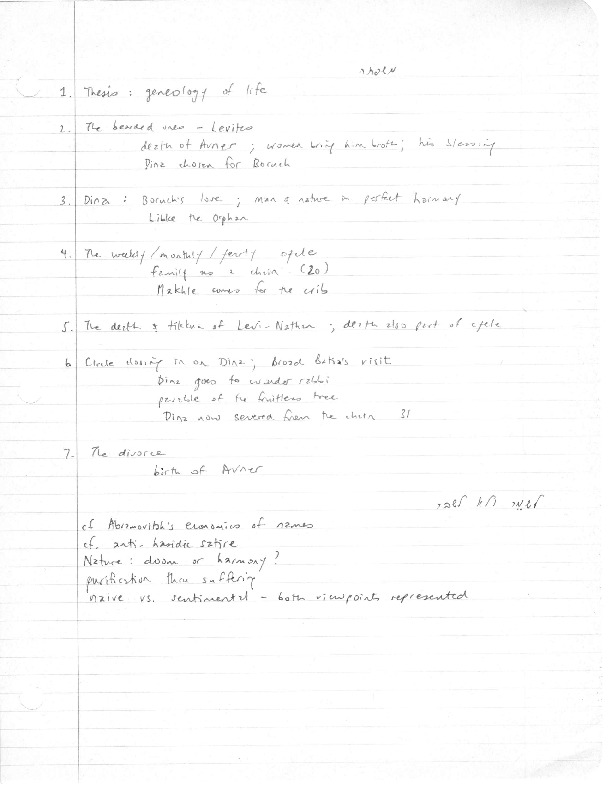 1. Thesis : geneology of life
2. The bearded ones - Levites
death of Avner ; women bring him broth; his blessing
Dina chosen for Boruch
3. Dina : Boruch's love ; man & nature in perfect harmony
Libke the Orphan
4. The weekly/monthly/yearly cycle
family as a chain (20)
Makhle comes for the crib
5. The death & tikkun of Levi-Nathan ; death also part of cycle
6 Circle closing in on Dina; Broad Batia's visit
Dina goes to wonder rabbi
parable of the fruitless tree
Dina now severed from the chain 31
7. The divorce
birth of Avner
cf Abramovitsh's economics of names
cf. anti-hasidic satire
Nature : doom or harmony?
purification thru suffering
naive vs. sentimental - both viewpoints represented